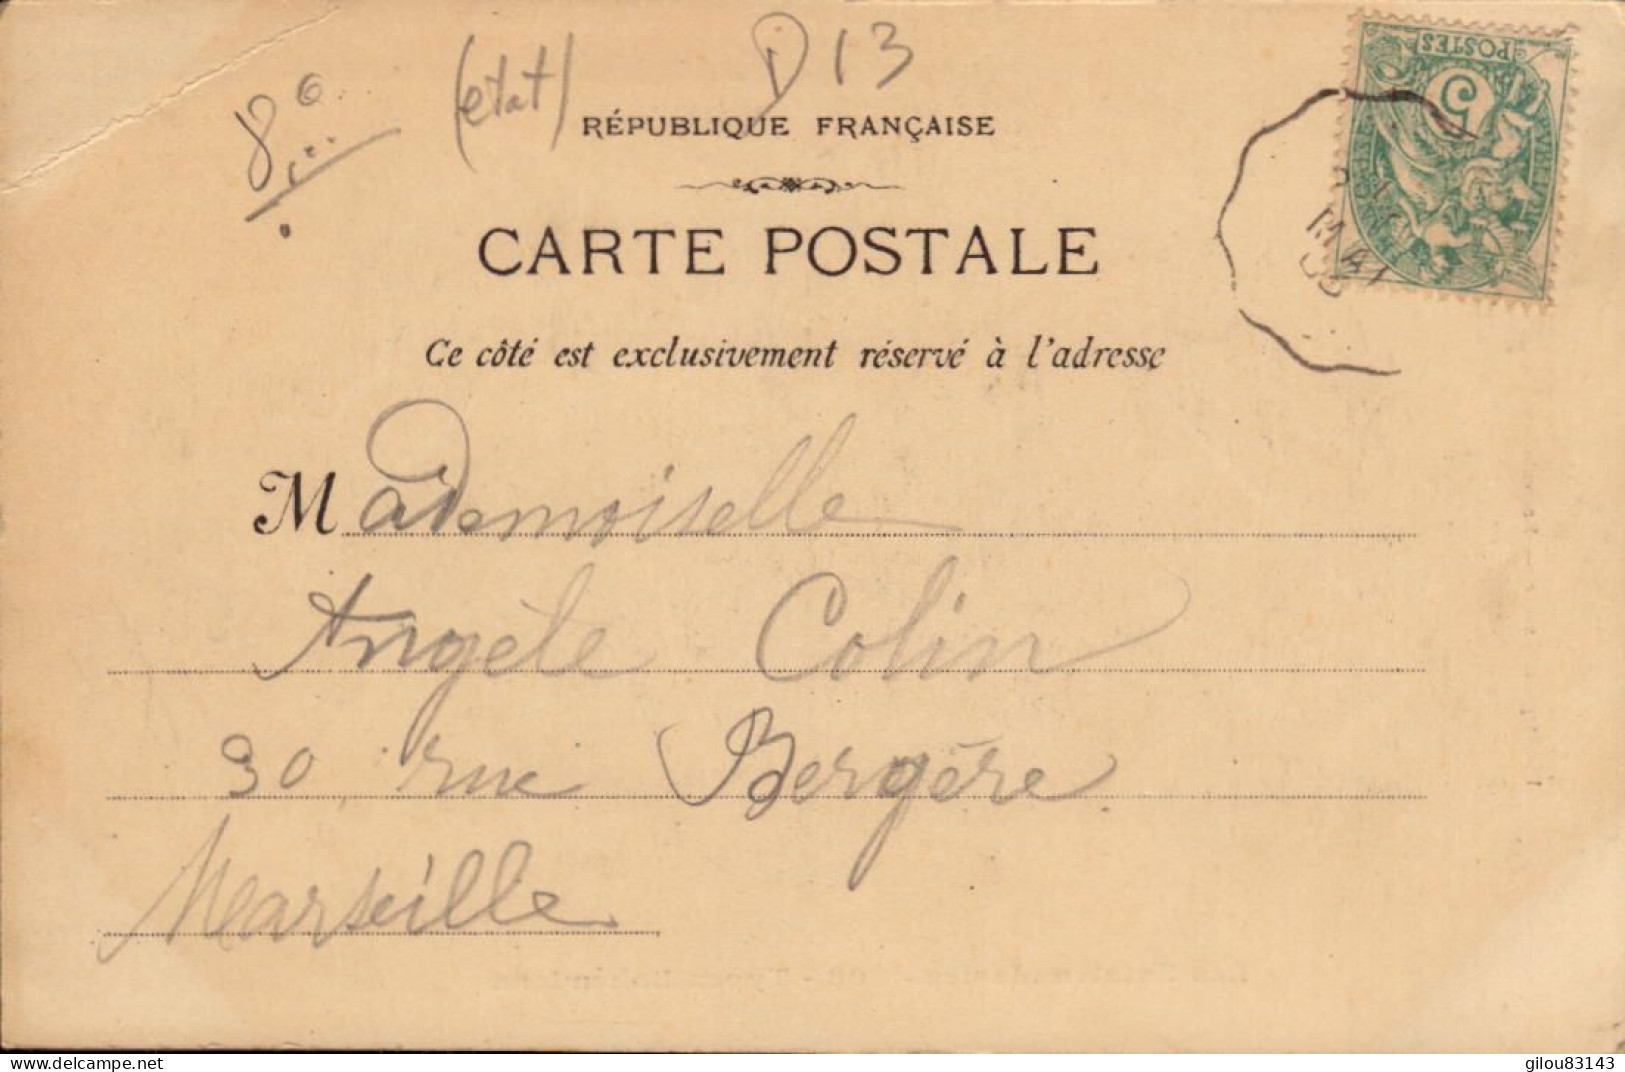 8,00
(état)
D13
RÉPUBLIQUE FRANÇAISE
CARTE POSTALE
Ce côté est exclusivement réservé à l'adresse
POSTES
5
MAI
Mademoiselle
Angèle Colin
30, rue Bergère
Marseille
delcampe.net
gilou83143